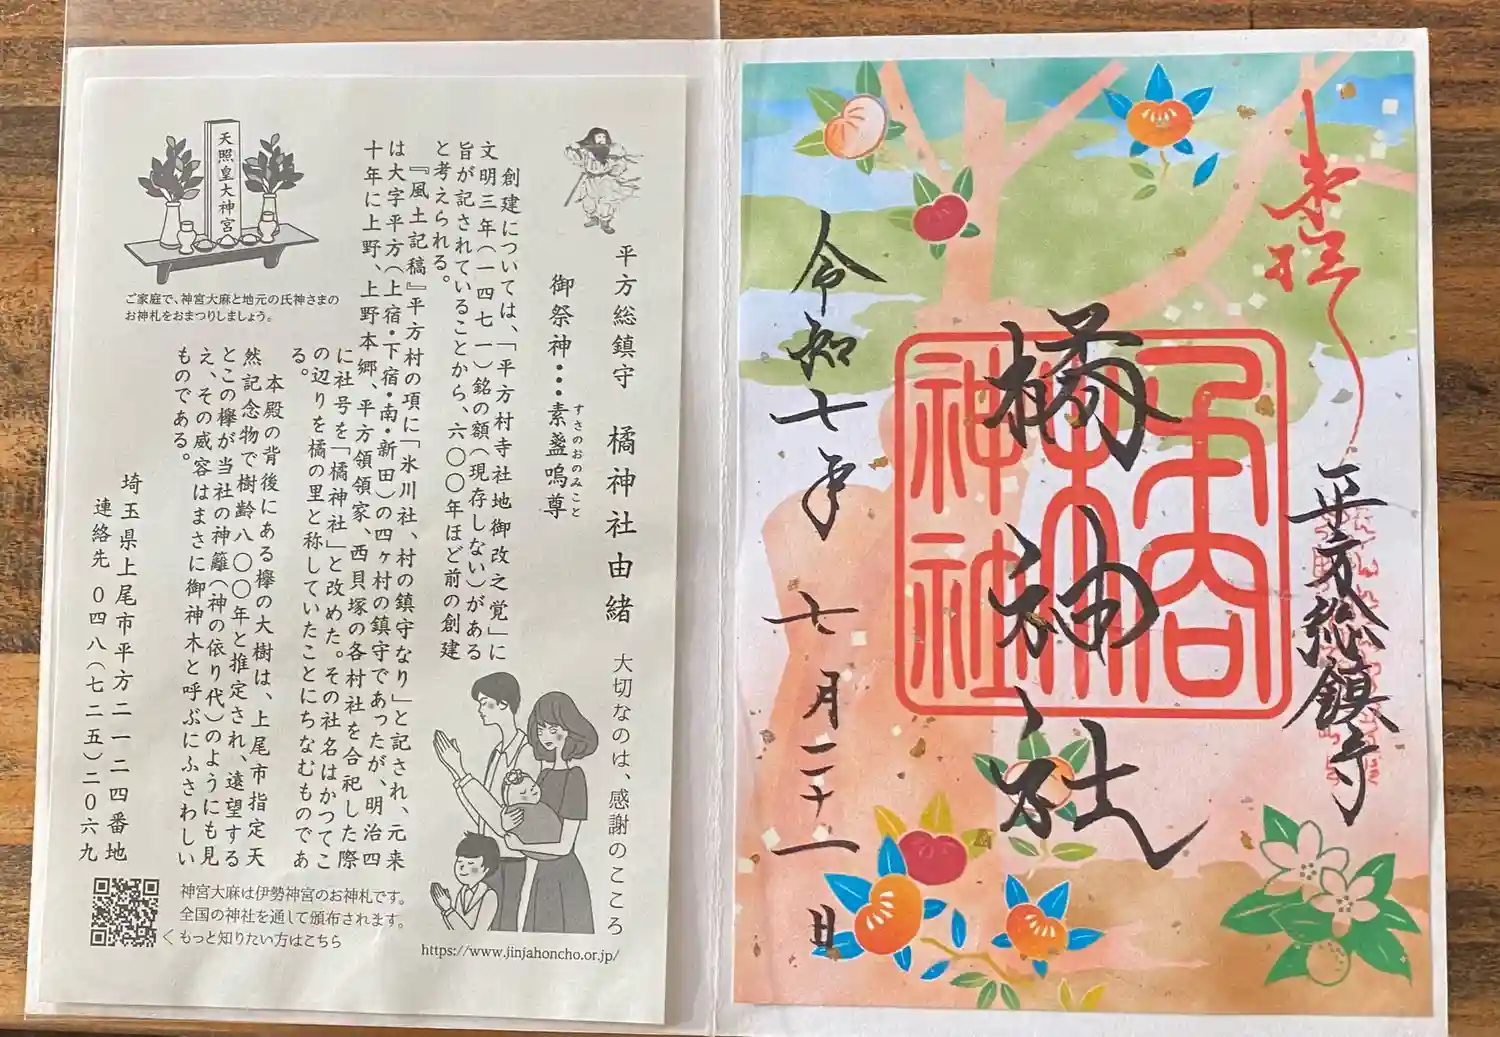 奉拝
平方総鎮守
橘神社
令和七年七月二十一日
平方総鎮守 橘神社由緒
御祭神・・・素盞嗚尊
すさのおのみこと
創建については、「平方村寺社地御改之覚」に
文明三年(一四七一)銘の額(現存しない)がある
旨が記されていることから、六〇〇年ほど前の創建
と考えられる。
『風土記稿』平方村の項に「氷川社、村の鎮守なり」と記され、元来
は大字平方(上宿・下宿・南・新田)の四ヶ村の鎮守であったが、明治四
十年に上野、上野本郷、平方領領家、西貝塚の各村社を合祀した際
に社号を「橘神社」と改めた。その社名はかつてこ
の辺りを橘の里と称していたことにちなむものであ
る。
本殿の背後にある欅の大樹は、上尾市指定天
然記念物で樹齢八〇〇年と推定され、遠望する
とこの欅が当社の神籬(神の依り代)のようにも見
え、その威容はまさに御神木と呼ぶにふさわしい
ものである。
埼玉県上尾市平方二一二四番地
連絡先 〇四八(七二五)二〇六九
天照皇大神宮
ご家庭で、神宮大麻と地元の氏神さまの
お神札をおまつりしましょう。
大切なのは、感謝のこころ
神宮大麻は伊勢神宮のお神札です。
全国の神社を通して頒布されます。
くもっと知りたい方はこちら
https://www.jinjahoncho.or.jp/